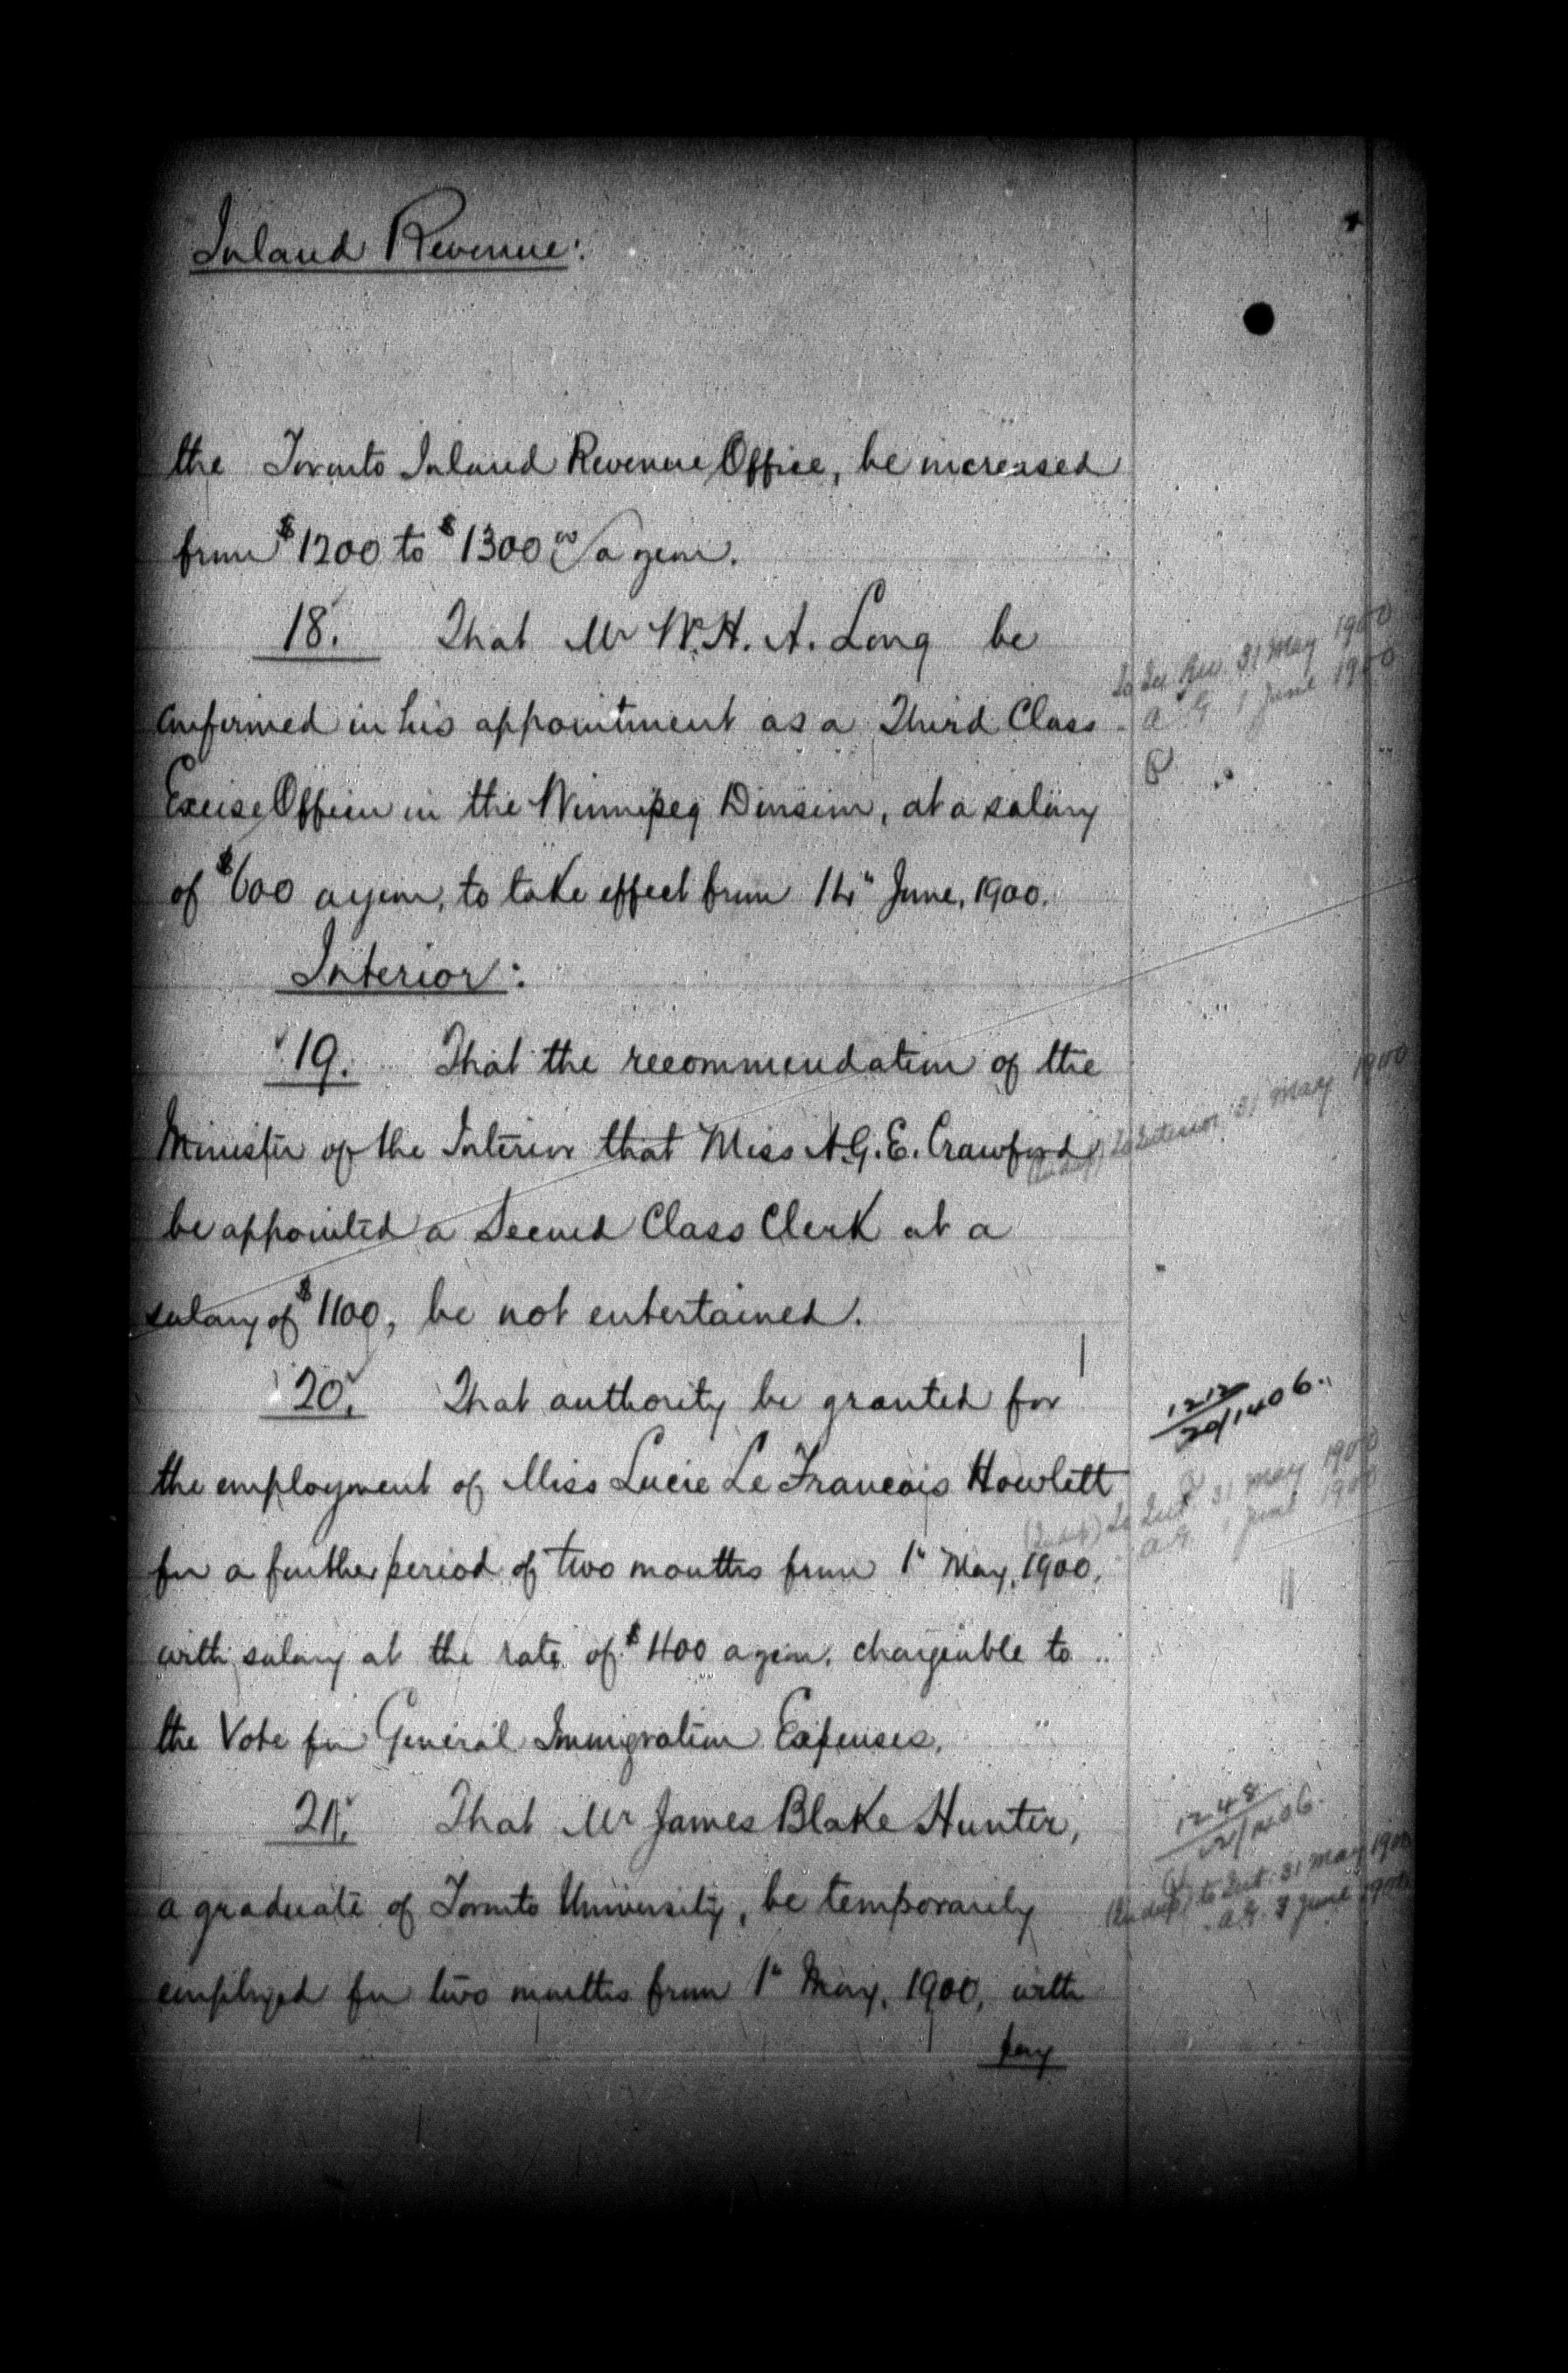 Inland Revenue:
the Toronto Inland Revenue Office, be increased
from $1200 to $1300 00/ a year.
18. That Mr W. H. A. Long be
To In. Rev. 31 May 1900
" A.G. 1 June 1900
confirmed in his appointment as a Third Class
Excise Officer in the Winnipeg Division, at a salary
of $600 a year, to take effect from 14" June, 1900.
Interior:
19. That the recommendation of the
To Interior 31 May 1900
Minister of the Interior that Miss A. G. E. Crawford
be appointed a Second Class Clerk at a
salary of $1100, be not entertained.
20. That authority be granted for
1212
20/1406.
the employment of Miss Lucie Le Francois Howlett
To Int. 31 May 1900
" A.G. 1 June 1900
for a further period of two months from 1" May, 1900,
with salary at the rate of $400 a year, chargeable to
the Vote for General Immigration Expenses.
21. That Mr James Blake Hunter,
1248
21/1406.
to Int. 31 May 1900
" A.G. June 1900
a graduate of Toronto University, be temporarily
employed for two months from 1" May, 1900, with
pay